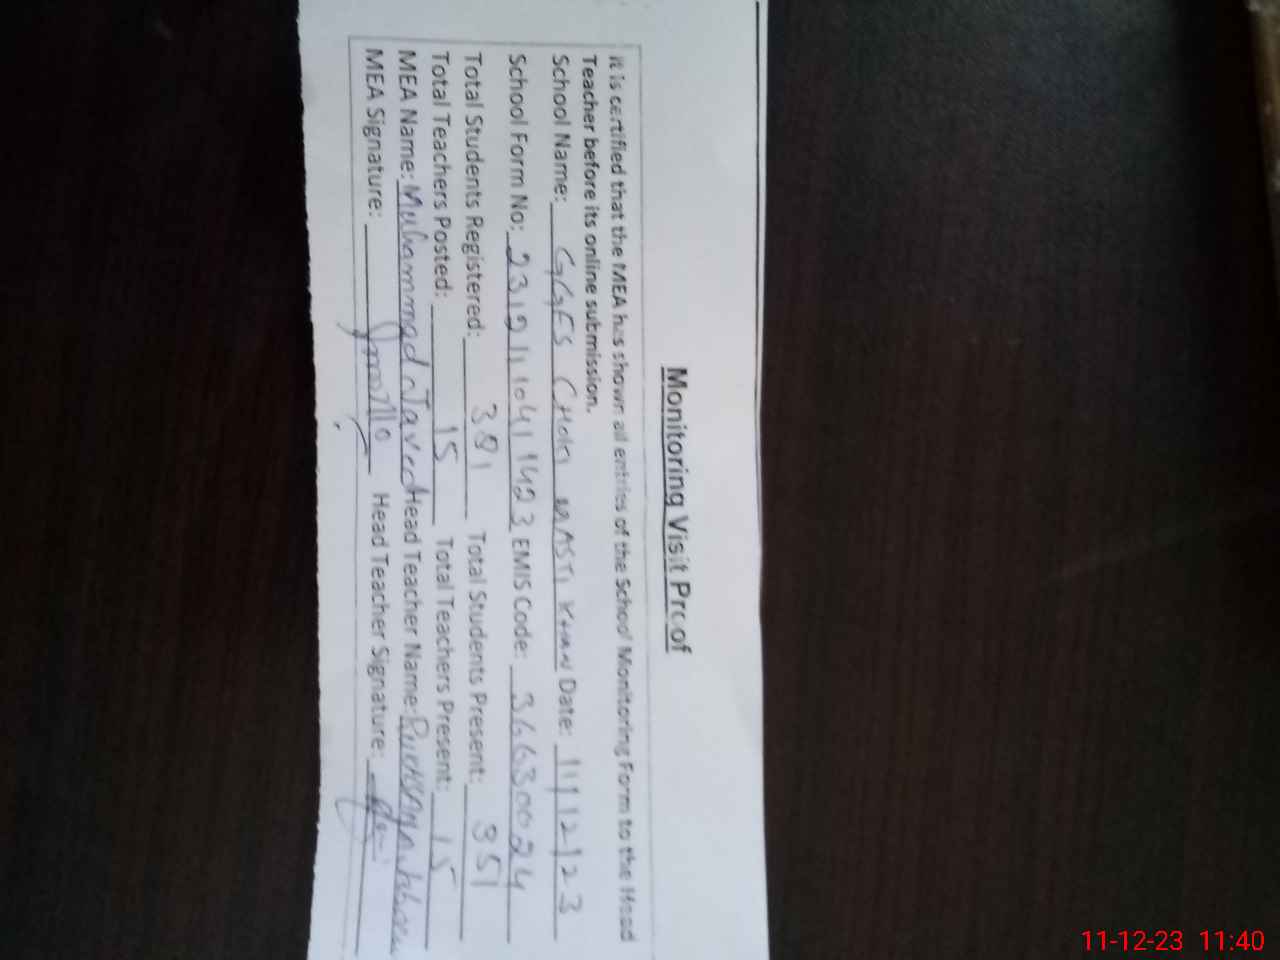 Monitoring Visit Proof
It is certified that the MEA has shown all entries of the School Monitoring Form to the Head
Teacher before its online submission.
School Name: GGES CHOKI MASTI KHAN Date: 11/12/23
School Form No: EMIS Code: 36630024
Total Students Registered: 391 Total Students Present: 351
Total Teachers Posted: 15 Total Teachers Present: 15
MEA Name: Muhammad Javed Head Teacher Name:
MEA Signature: Head Teacher Signature:
11-12-23 11:40